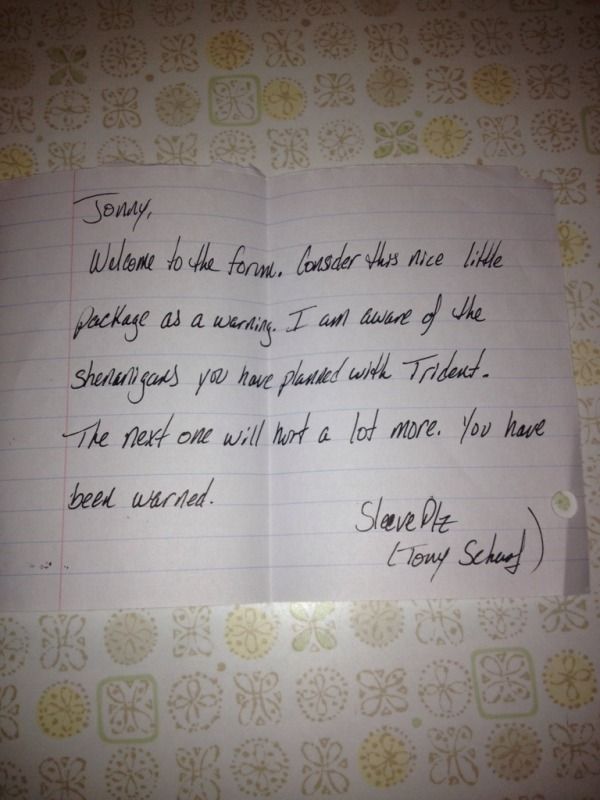 Jonny,
Welcome to the forum. Consider this nice little
package as a warning. I am aware of the
shenanigans you have planned with Trident.
The next one will hurt a lot more. You have
been warned.
SleevePlz
(Tony Scharf)